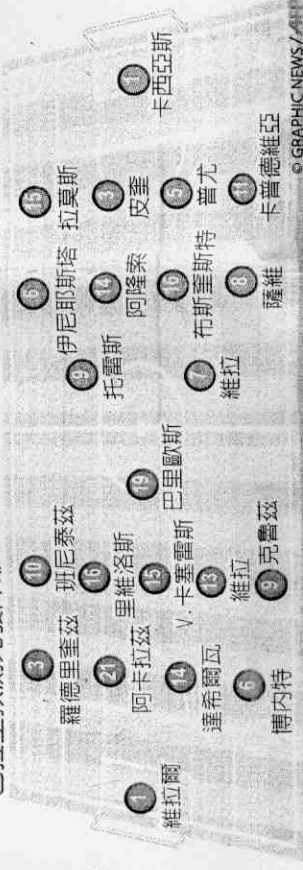 1
維拉爾
3
羅德里奎茲
21
阿卡拉茲
14
達希爾瓦
6
博內特
10
班尼泰茲
16
里維洛斯
15
V.卡塞雷斯
13
維拉
9 克魯茲
19
巴里歐斯
9
托雷斯
7
維拉
6
伊尼耶斯塔
14
阿隆索
16
布斯奎斯特
8
薩維
15
拉莫斯
3
皮奎
5
普尤
11
卡普德維亞
1
卡西亞斯
© GRAPHIC NEWS/